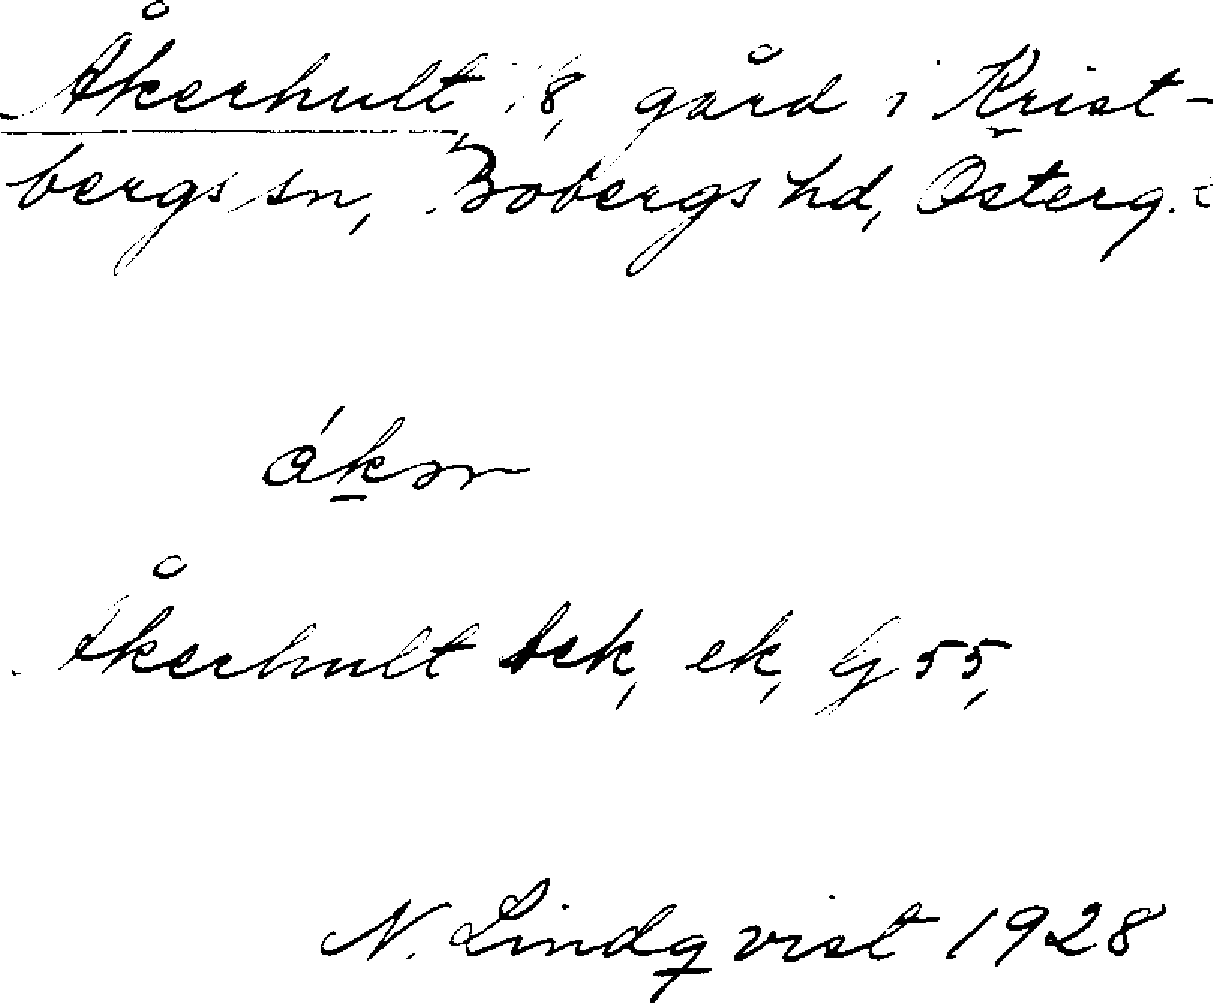 Åkerhult 1/8, gård i Krist-
bergs sn, Bobergs hd, Österg.
ákər
Åkerhult Jek, ek, G 55,
N. Lindqvist 1928